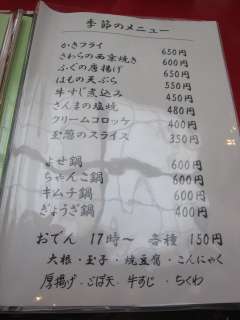 季節のメニュー
かきフライ 650円
さわらの西京焼き 600円
ふぐの唐揚げ 650円
はもの天ぷら 550円
牛すじ煮込み 450円
さんまの塩焼 480円
クリームコロッケ 400円
玉葱のスライス 350円
よせ鍋 600円
ちゃんこ鍋 600円
キムチ鍋 600円
ぎょうざ鍋 400円
おでん 17時〜 各種 150円
大根・玉子・焼豆腐・こんにゃく
厚揚げ・ごぼ天・牛すじ・ちくわ